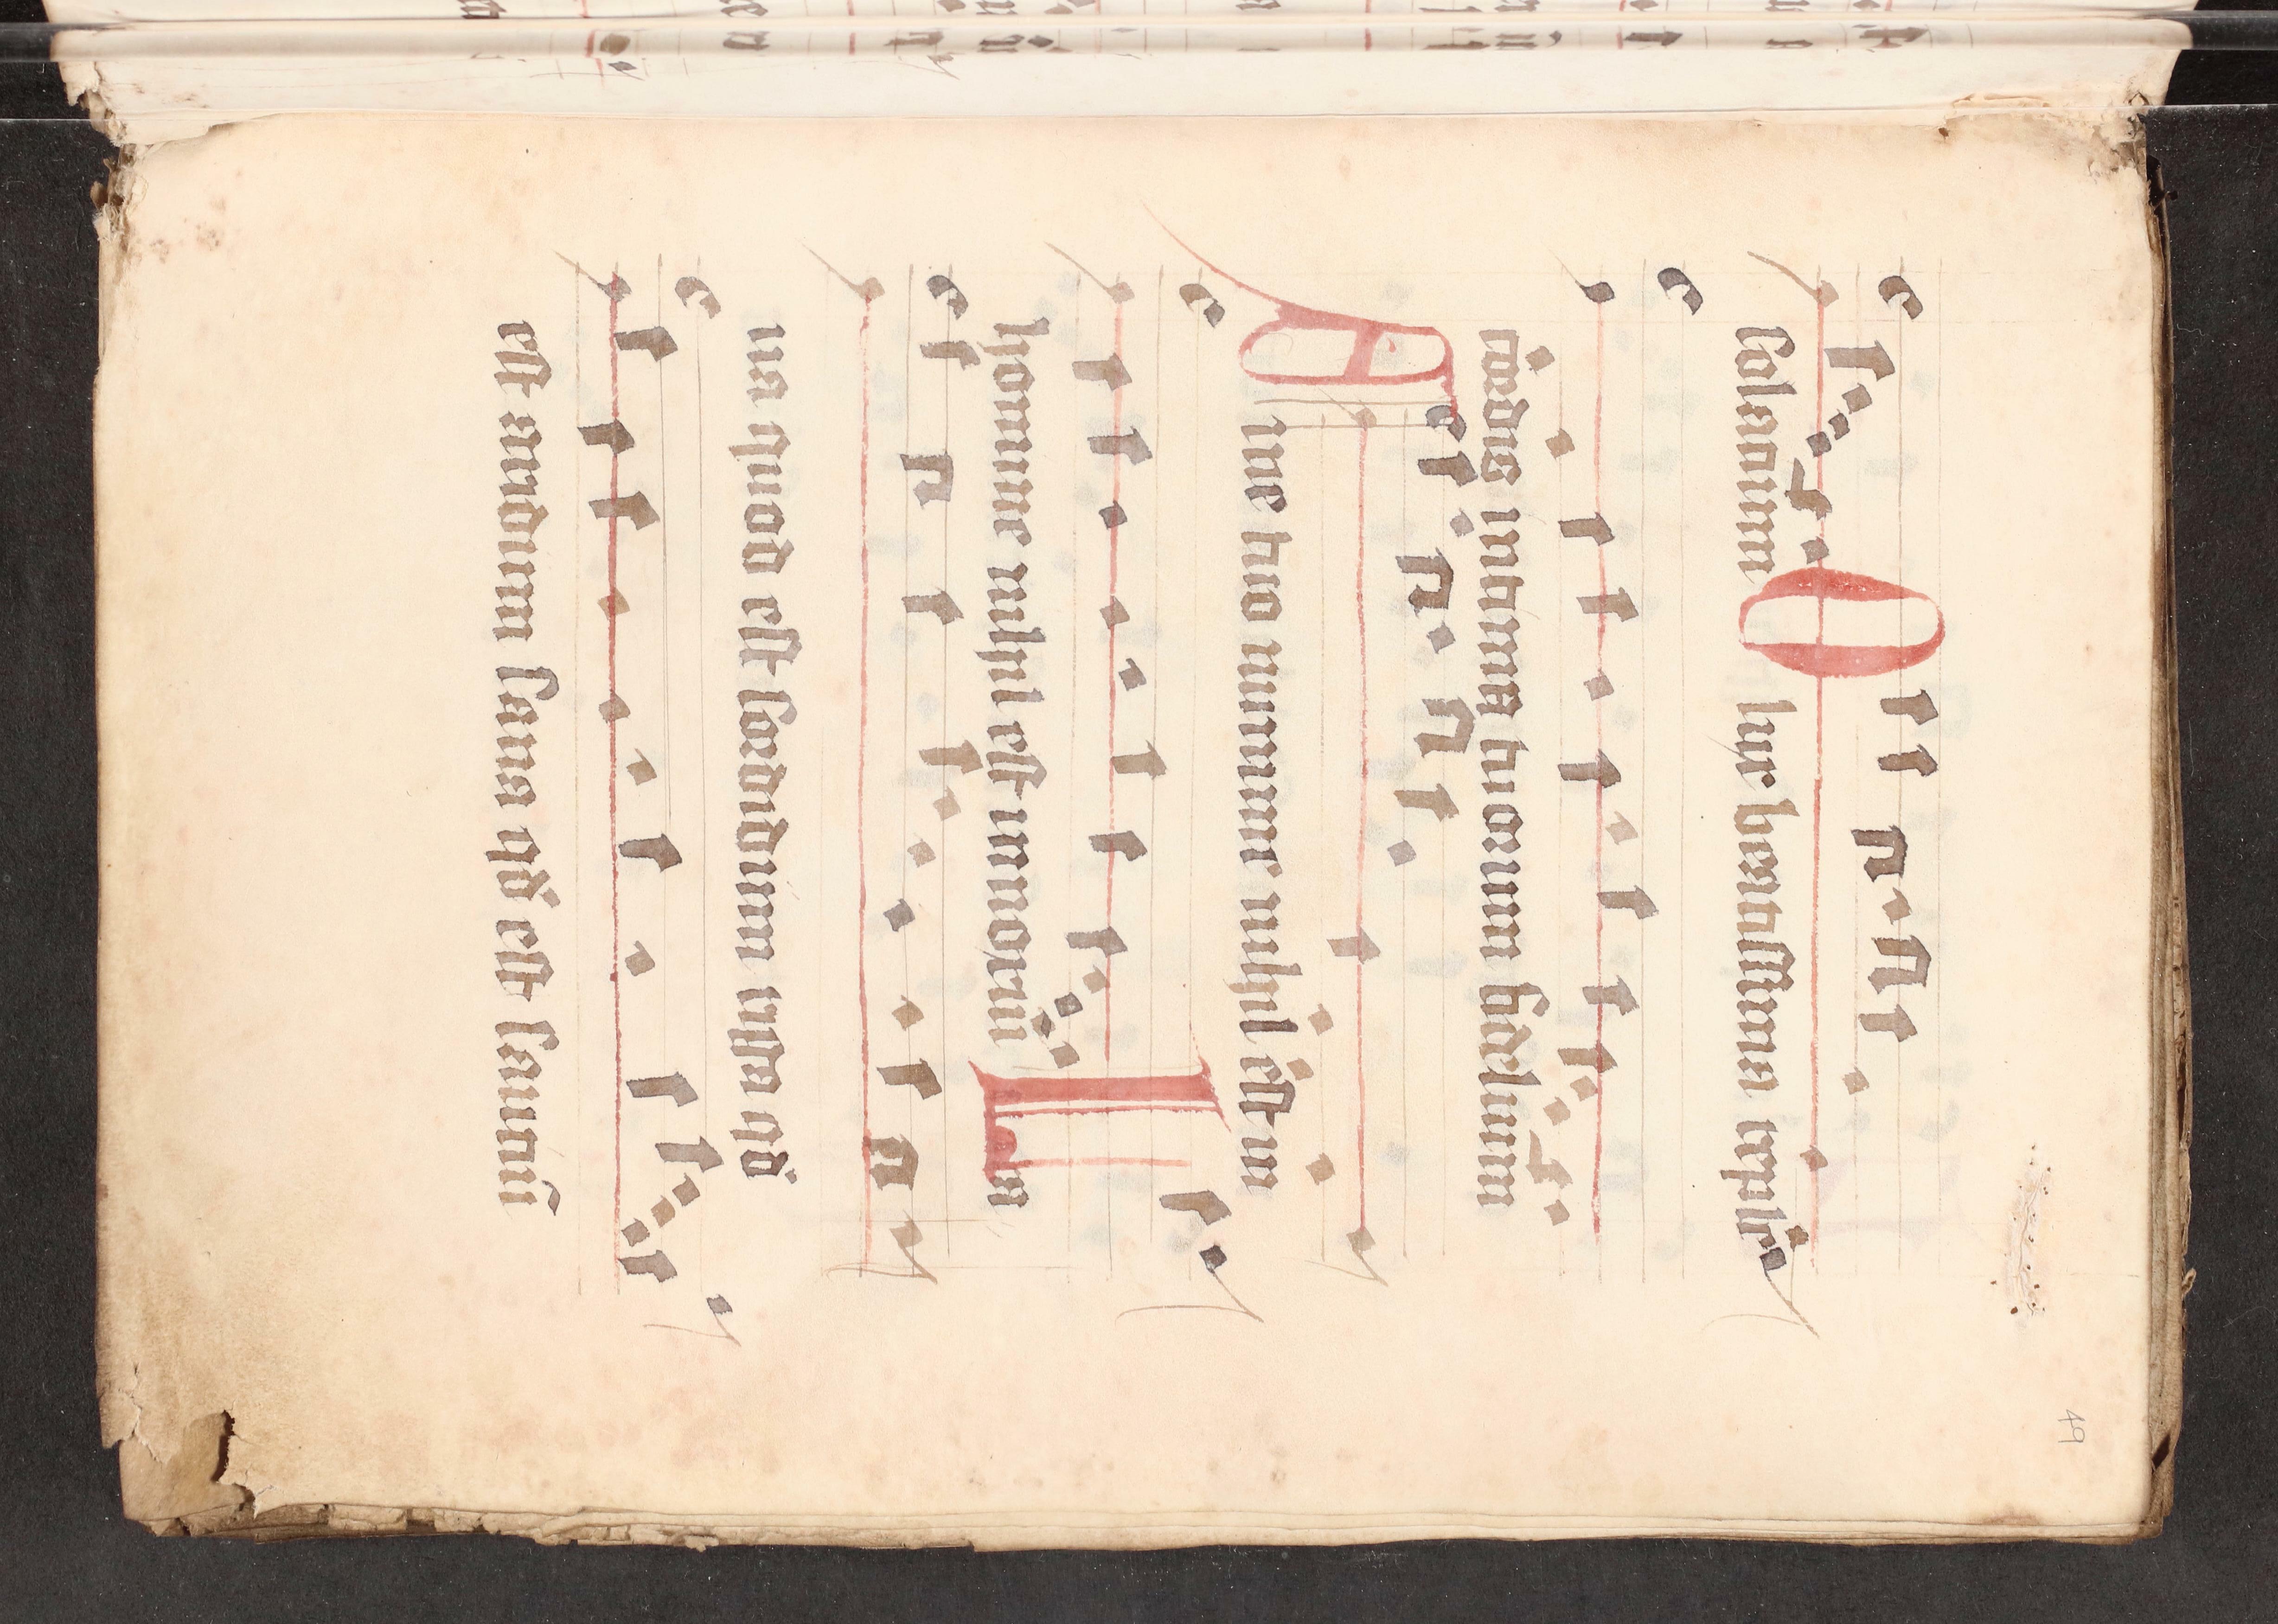 solatium O lux beatissima reple
cordis intima tuorum fidelium
Sine tuo numine nihil est in
homine nihil est innoxiū La
ua quod est sordidum riga qd
est aridum sana qd est sauciū
49